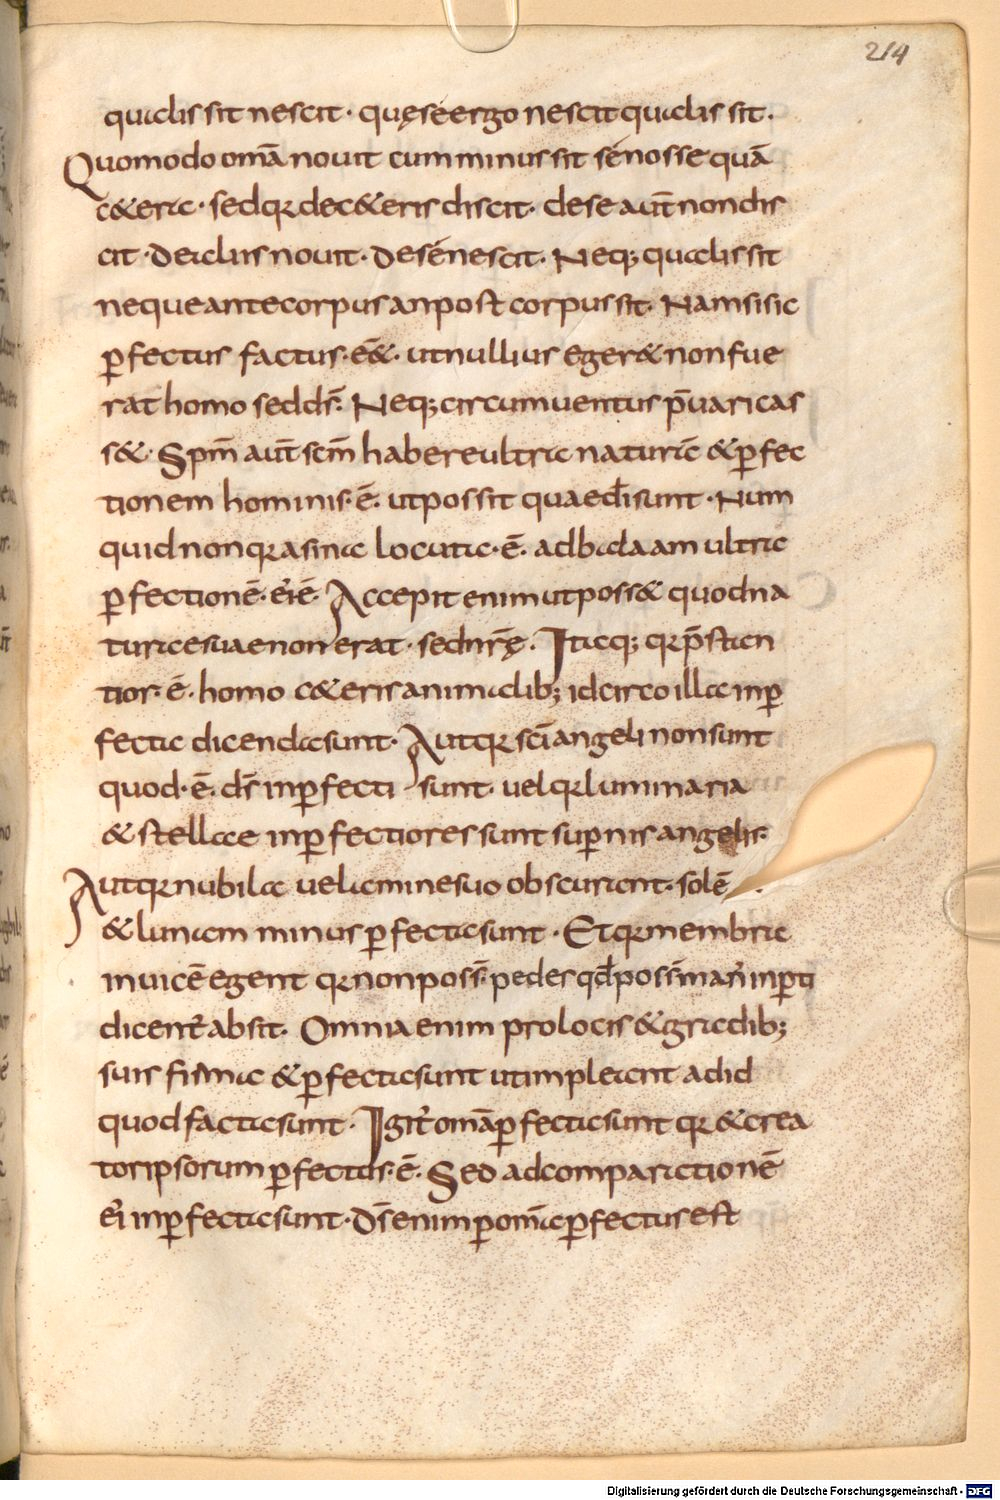 214
qualis sit nescit · quę sé ergo nescit qualis sit ·
Quomodo omā nouit cum minus sit sé nosse quā
c&era · sed qr de c&eris discit · de se aut̄ non dis
cit · De aliis nouit · De sé nescit · Neq; qualis sit
neque ante corpus an post corpus sit · Nam si sic
ꝑfectus factus · eē& · ut nullius eger& non fue
rat homo sed ds̄ · Neq; circumuentus p̄uaricas
s& · Spm̄ aut̄ scm̄ habere ultra naturā & ꝑfec
tionem hominis · ē · ut possit quae di sunt · Num
quid non qr asina locuta · ē · ad balaam ultra
ꝑfectionē · ei ē · Accepit enim ut poss& quod na
turae suae non erat · sed nrę̄ · Itaq; qr p̄stan
tior · ē · homo c&eris animalib; idcirco illa inꝑ
fecta dicenda sunt · Aut qr sci angeli non sunt
quod · ē · ds̄ inꝑfecti sunt · uel qr luminaria
& stellae inꝑfectiores sunt suꝑnis angelis ·
Aut qr nubila uel amine suo obscurant · solē ·
& lunam minus ꝑfecta sunt · Et qr membra
in uicē egent qr non poss̄ · pedes qd̄ poss̄ man̄ inꝑti
dicent̄ absit · Omnia enim pro locis & gradib;
suis firma & ꝑfecta sunt ut impleant ad id
quod facta sunt · Igit̄ omā ꝑfecta sunt qr & crea
tor ipsorum ꝑfectus · ē · Sed ad comparationē
ei inꝑfecta sunt · Ds̄ enim ꝑ omīa ꝑfectus est
Digitalisierung gefördert durch die Deutsche Forschungsgemeinschaft - DFG